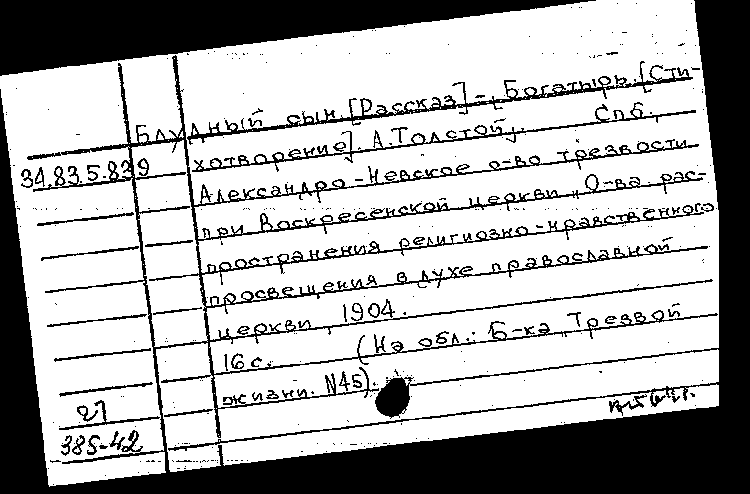 Блудный сын. [Рассказ] - Богатырь. [Сти-
34.83.5.839
хотворение]. А. Толстой. Спб,
Александро-Невское о-во трезвости
при Воскресенской церкви „О-ва рас-
пространения религиозно-нравственного
просвещения в духе православной
церкви, 1904.
16 с. (На обл.: Б-ка „Трезвой
жизни. N45).
27
385-42